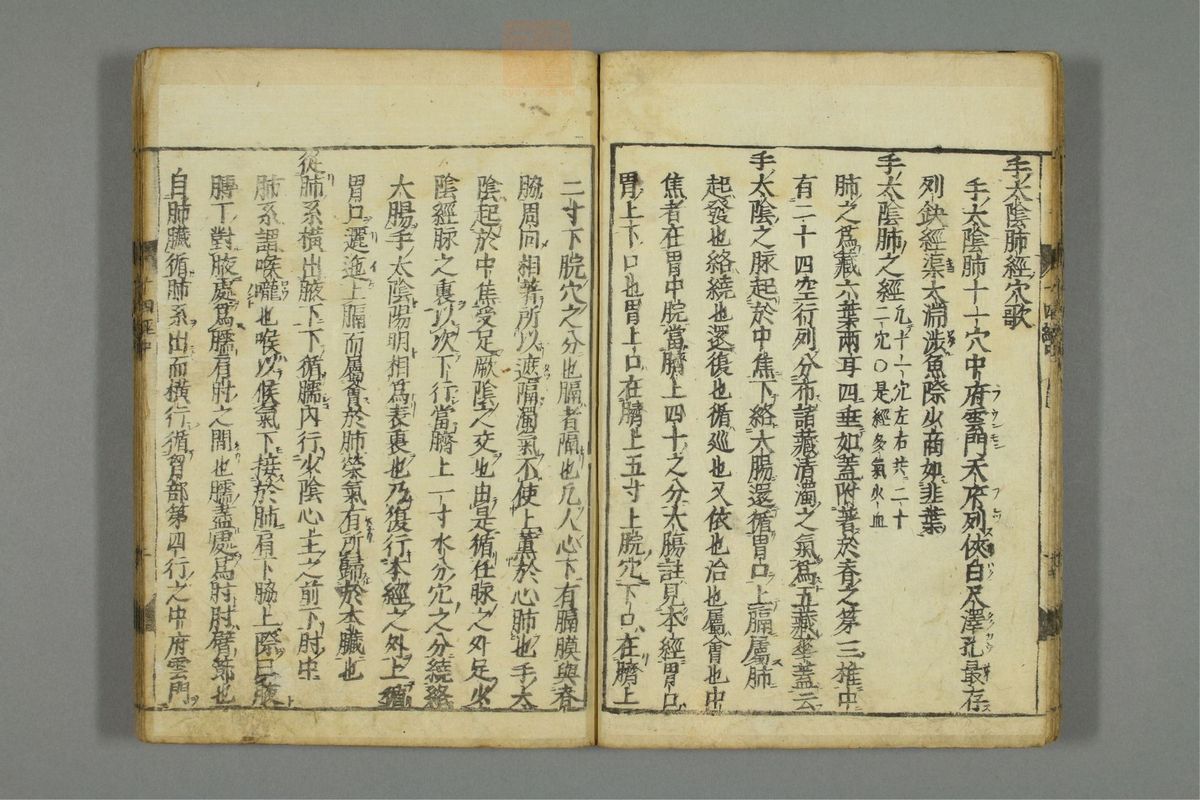 手太陰肺經穴歌
手太陰肺十一穴中府雲門天府列俠白尺澤孔最存
列缺經渠太淵涉魚際少商如韭葉
手太陰肺之經凡十一穴左右共二十二穴○是經多氣少血
肺之爲藏六葉兩耳四垂如蓋附著於脊之第三椎中
有二十四空行列分布諸藏清濁之氣爲五藏華蓋云
手太陰之脉起於中焦下絡大腸還循胃口上膈屬肺
起發也絡繞也還復也循巡也又依也沿也屬會也中
焦者在胃中脘當臍上四寸之分大腸註見本經胃口
胃上下口也胃上口在臍上五寸上脘穴下口在臍上
二寸下脘穴之分也膈者隔也凡人心下有膈膜與脊
脇周回相著所以遮隔濁氣不使上薰於心肺也手太
陰起於中焦受足厥陰之交也由是循任脉之外足少
陰經脉之裏以次下行當臍上一寸水分穴之分繞絡
大腸手太陰陽明相爲表裏也乃復行本經之外上循
胃口邐迤上膈而屬會於肺榮氣有所歸於本臟也
從肺系橫出腋下下循臑內行少陰心主之前下肘中
肺系謂喉嚨也喉以候氣下接於肺肩下脇上際曰腋
膊下對腋處爲臑肩肘之間也臑盡處爲肘肘臂節也
自肺臟循肺系出而橫行循胷部第四行之中府雲門